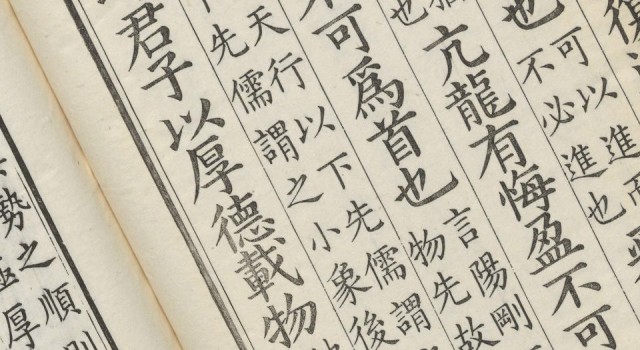 也
可以進而
不必進也
也
亢龍有悔盈不可
不可爲首也
言陽剛
物先故
天行以下先儒謂
先儒謂之小象後
君子以厚德載物
之順則
勢極厚